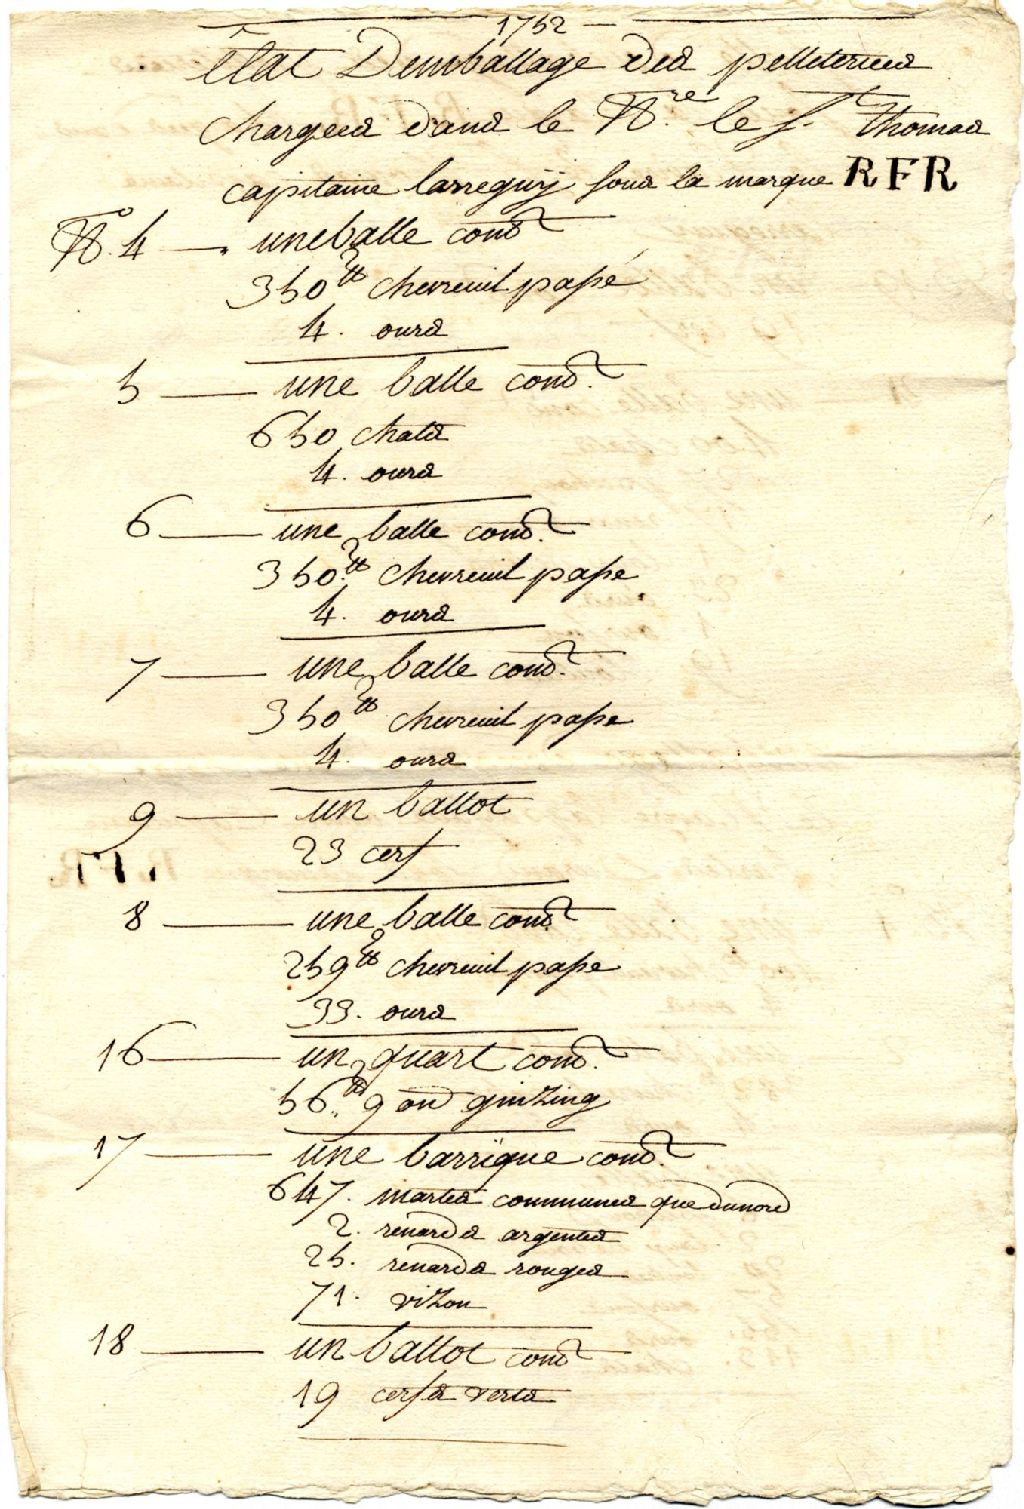 1752
Etat Demballage des pelleteries
chargees dans le N.re le St. Thomas
capitaine larreguÿ sous la marque RFR
No. 4 — une balle cont.
350 ℔ chevreuil passé
4. ours
5 — une balle cont.
650 chats
4. ours
6 — une balle cont.
350 ℔ chevreuil passe
4. ours
7 — une balle cont.
350 ℔ chevreuil passe
4. ours
9 — un ballot
23 cerf
8 — une balle cont.
259 ℔ chevreuil passe
33. ours
16 — un quart cont.
56 ℔ 9 on ginzing
17 — une barrïque cont.
647. martes communes que dunord
2. renards argentes
25. renards rouges
71. vizon
18 — un ballot cont
19 cerfs verts